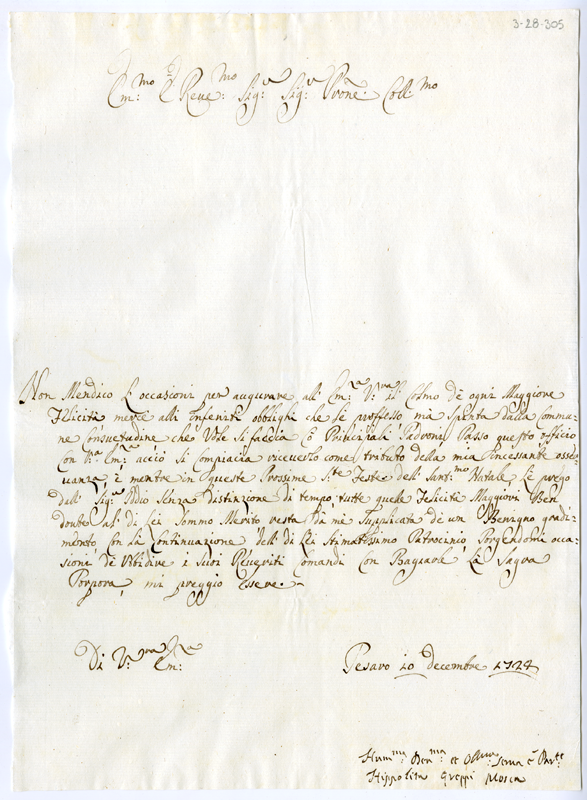 3-28-305
Em:mo e Reue:mo Sig:r Sig:r Prone: Coll:mo
Non Mendico L'occasioni per augurare all' Em:za V:ra il Colmo de ogni Maggiore
Felicità mentre alli infiniti oblighi che le professo, mà spinta dalla commu-
ne Consuetudine che Vole si faccia Cò Principali Padroni, Passo questo officio
Con V:ra Em:za acciò si Compiacia riceuerlo come tributo della mia incessante osse-
uanza, è mentre in queste Prossime S:te Feste dell' Sant:mo Natale Le prego
dall' Sig:re Idio Senza Distinzione di tempo, tutte quele Felicità Maggiori Ben
doute al' di Lei Sommo Merito resta da mè Supplicata de un Benigno gradi-
mento Con la Continuazione dell' di Lei Stimatissimo Patrocinio, Porgendomi occa-
sioni de Vbidire i Suoi Reueriti Comandi Con Bagiarle La Sagra
Porpora, mi preggio Essere
Di V:ra Em:za
Pesaro 20 decembre 1724
Hum:ma Deu:ma et Obb:ma Serua e Par:te
Hippolita Greppi Mosca